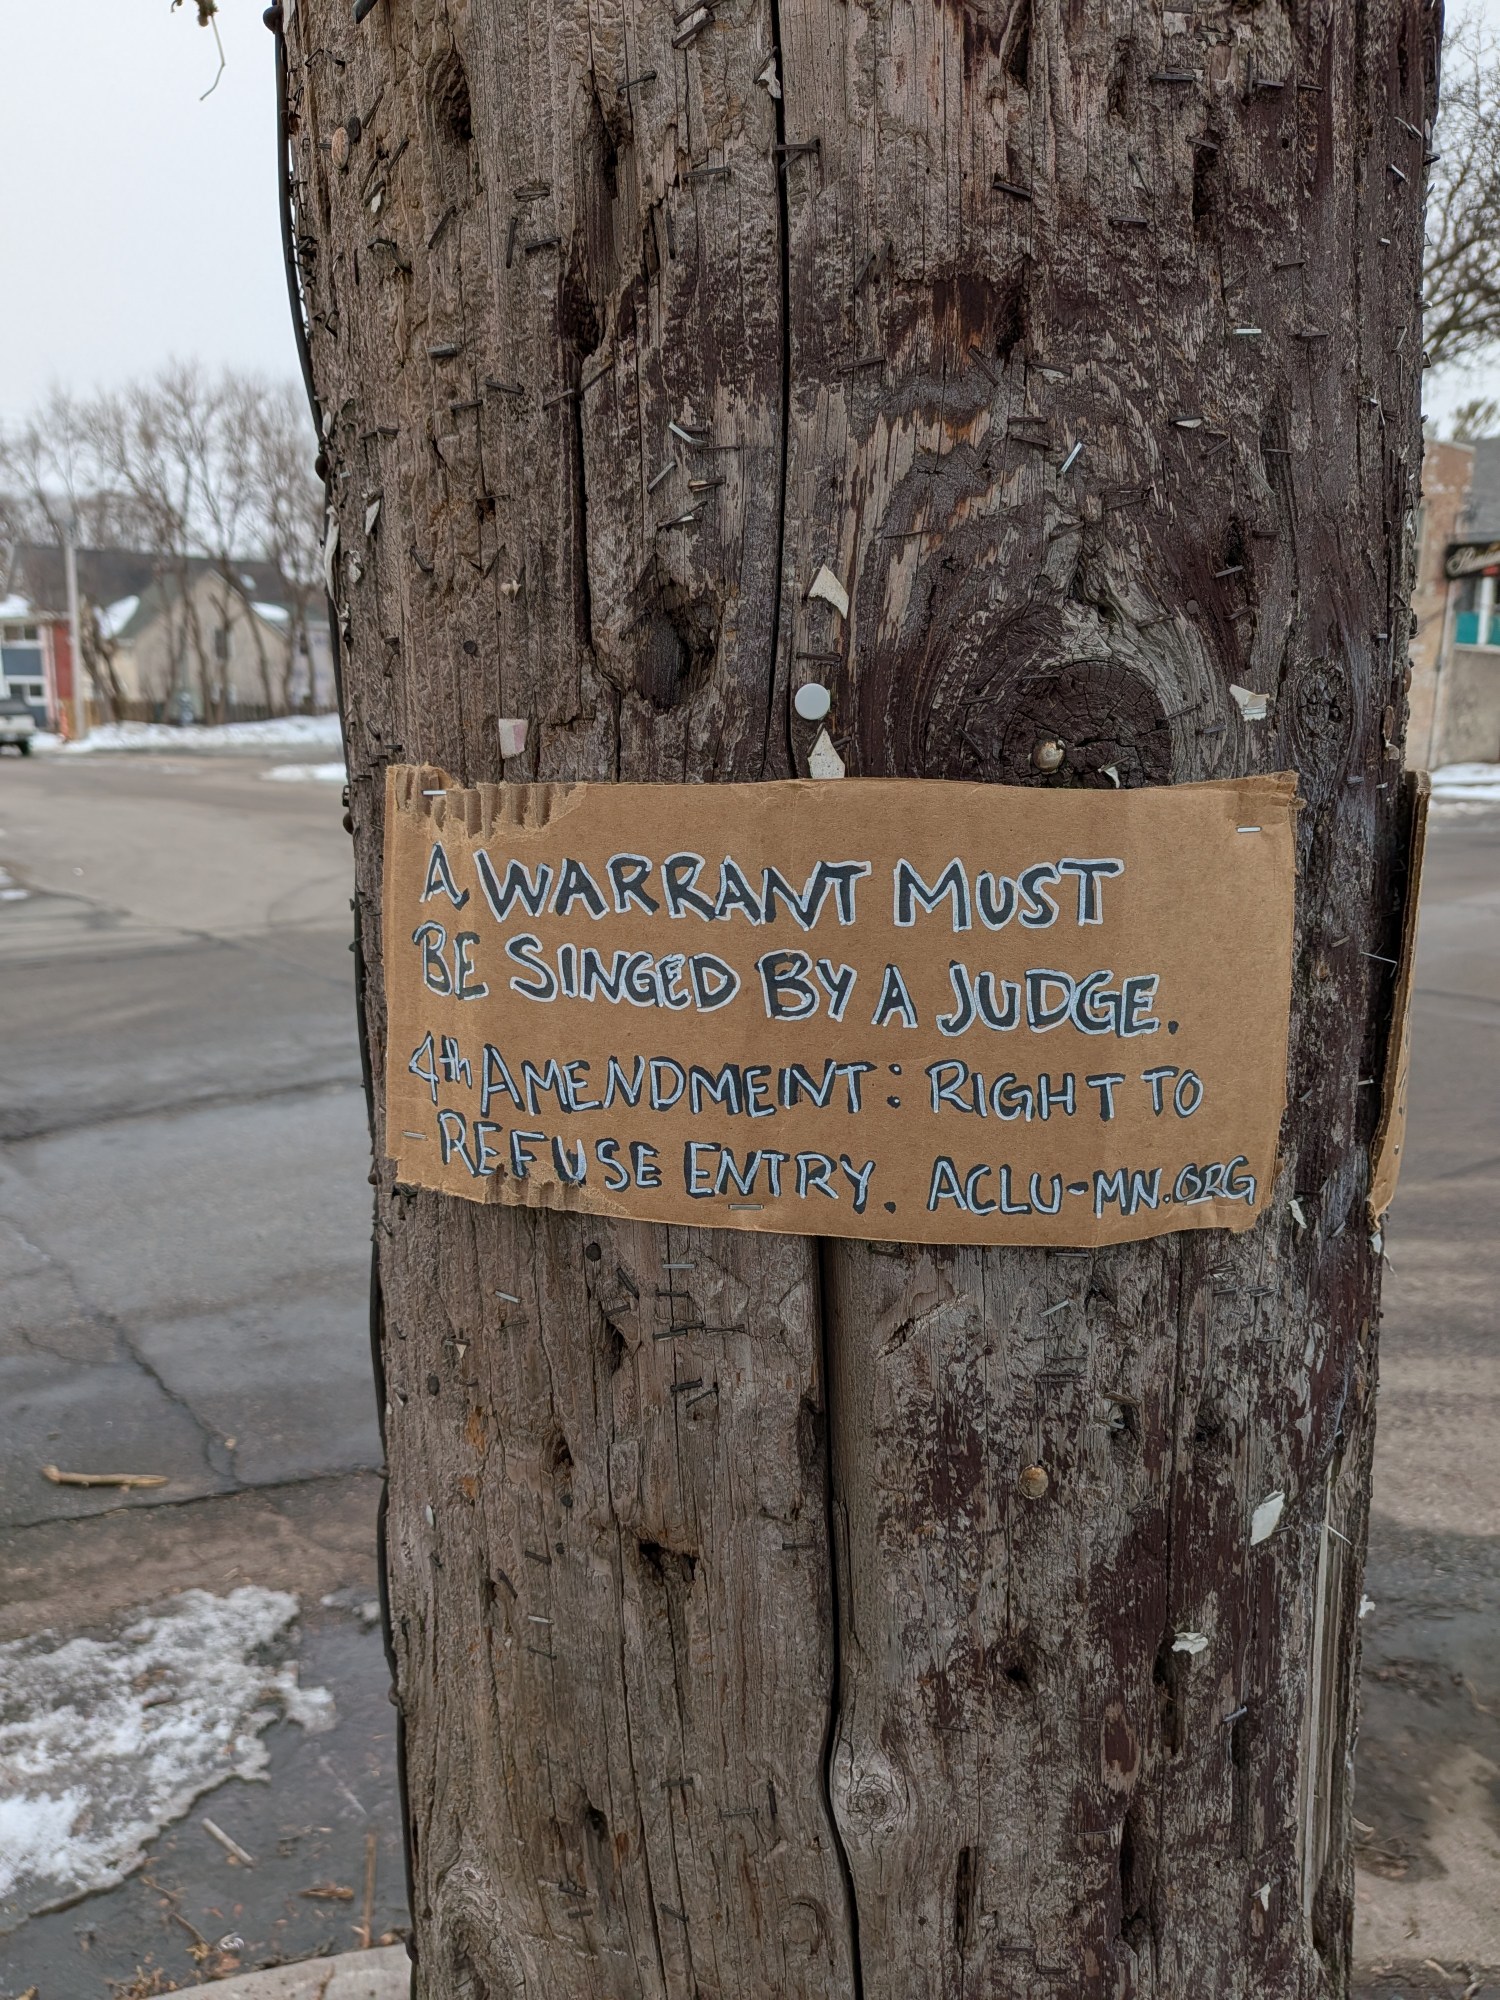 A WARRANT MUST
BE SINGED BY A JUDGE.
4th AMENDMENT: RIGHT TO
REFUSE ENTRY. ACLU-MN.ORG